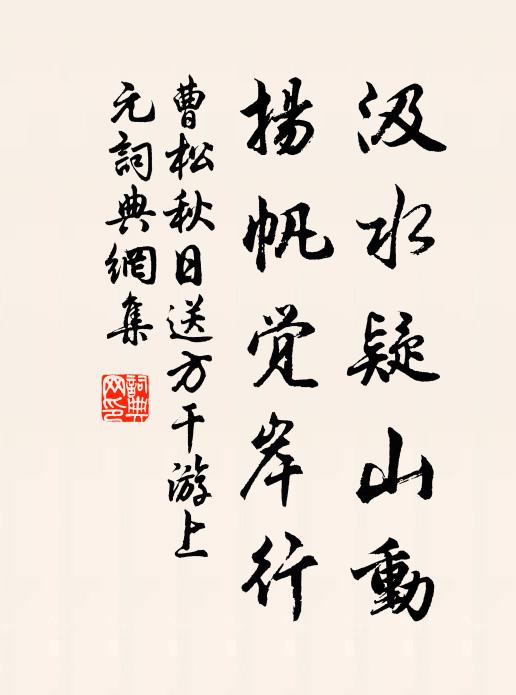 汲水疑山動
揚帆覺岸行
曹松秋日送方干游上
元詞典網集
詞典
网印